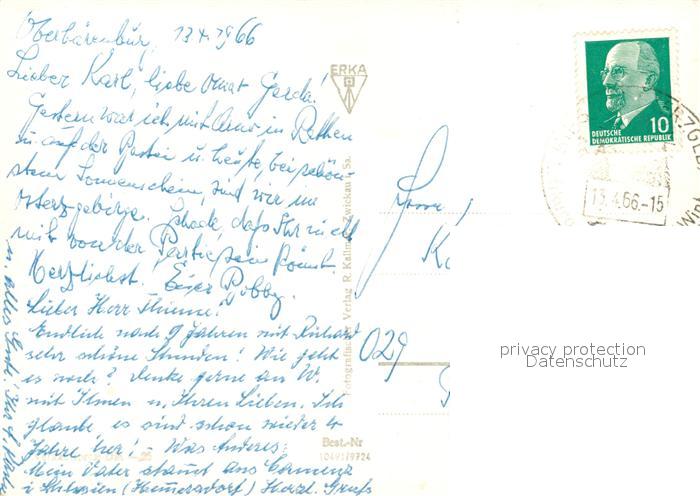 Oberbärenburg, 13.4.1966
Lieber Karl, liebe Gerda!
Gestern war ich mit Arno in Rathen
u. auf der Bastei u. heute, bei schön-
stem Sonnenschein, sind wir im
Osterzgebirge. Schade, daß Ihr nicht
mit von der Partie sein könnt.
Herzlichst Euer Bobby.
Lieber Herr Thieme!
Endlich nach 9 Jahren mit Richard
sehr schöne Stunden! Wie geht
es noch? Denke gerne an W.
mit Ihnen u. Ihren Lieben. Ich
glaube es sind schon wieder 4
Jahre her! - Was Anderes:
Mein Vater stammt aus
i. Schlesien (Hennersdorf) Herzl. Grüße
u. alles Gute. Ihr
ERKA
Fotografischer Verlag R. Kallmer, Zwickau i. Sa.
Best.-Nr
10491/9724
029
DEUTSCHE
DEMOKRATISCHE REPUBLIK
10
13.4.66.-15
privacy protection
Datenschutz